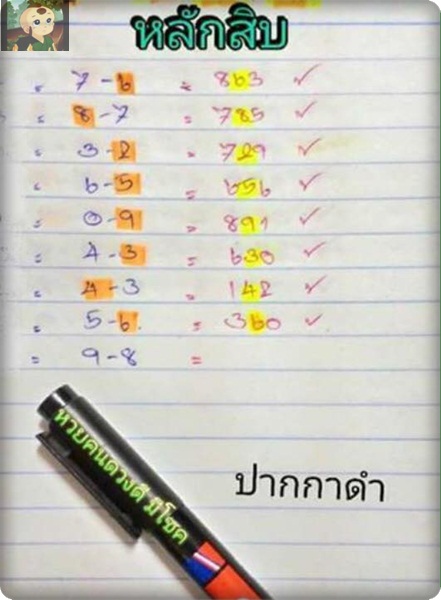 หลักสิบ
= 7-6 = 863 ✓
= 8-7 = 785 ✓
= 3-2 = 729 ✓
= 6-5 = 656 ✓
= 0-9 = 891 ✓
= 4-3 = 630 ✓
= 4-3 = 142 ✓
= 5-6 = 360 ✓
= 9-8 =
หวยคนดวงดี มีโชค
ปากกาดำ